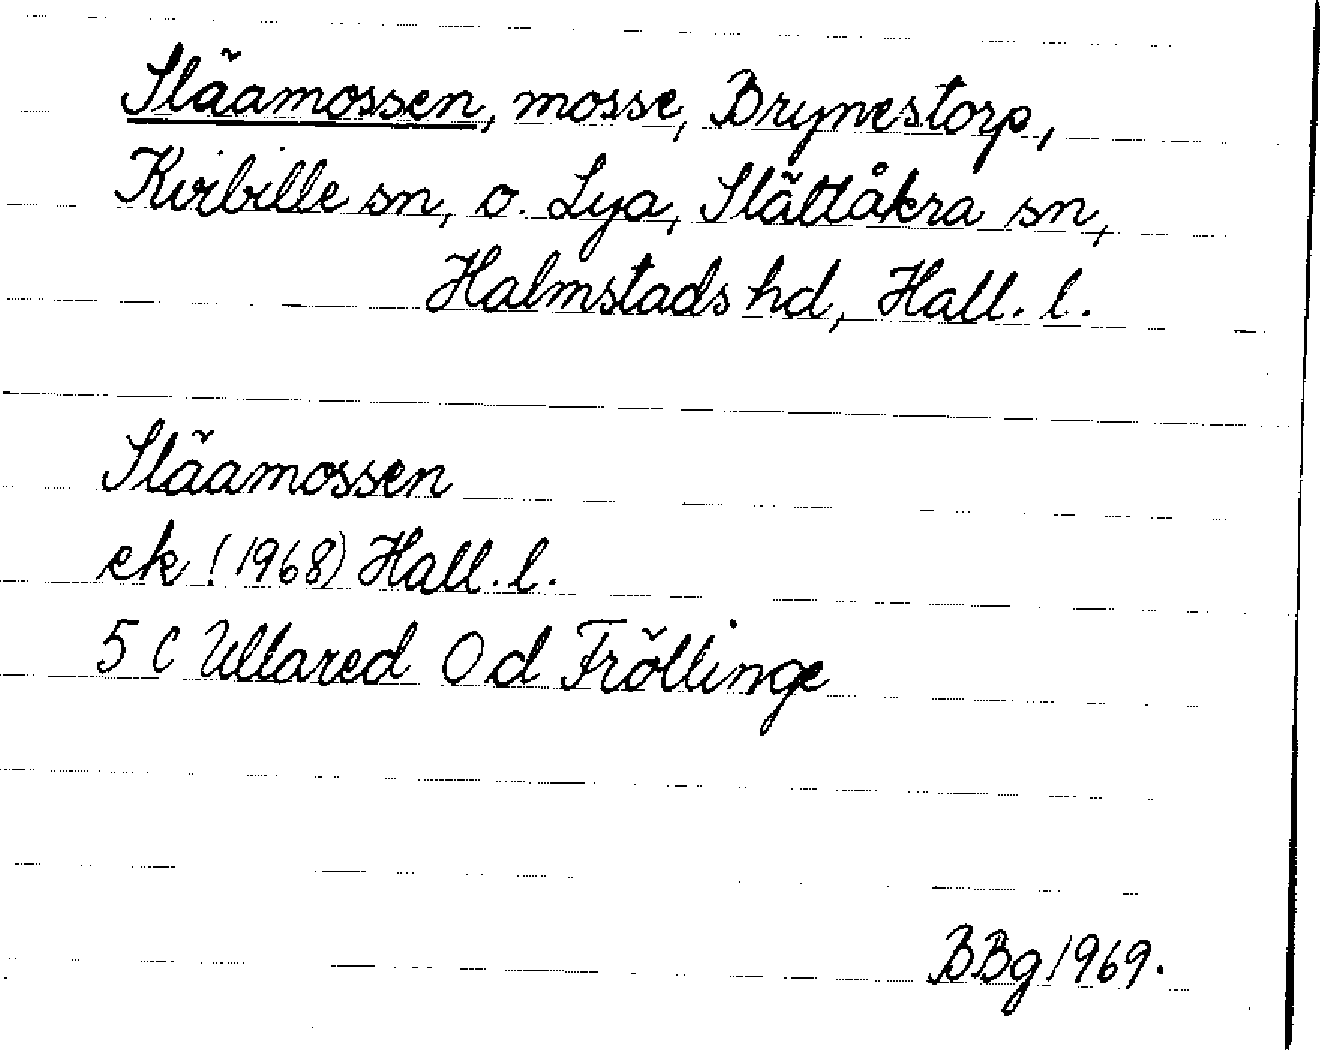 Släamossen, mosse, Brynestorp,
Kvibille sn, o. Lya, Slättåkra sn,
Halmstads hd, Hall. l.
Släamossen
ek ! (1968) Hall. l.
5 C Ullared 0 d Fröllinge
BBg 1969.